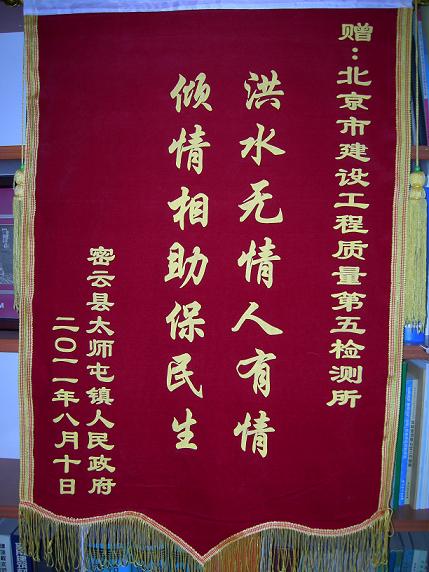 赠：北京市建设工程质量第五检测所
洪水无情人有情
倾情相助保民生
密云县太师屯镇人民政府
二〇一一年八月十日